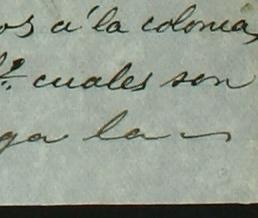 os a' la colonia,
2º. cuales son
ga la